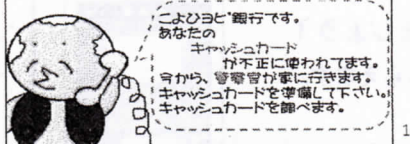 こよひヨビ銀行です。
あなたの
キャッシュカード
が不正に使われてます。
今から、警察官が家に行きます。
キャッシュカードを準備して下さい。
キャッシュカードを調べます。
1